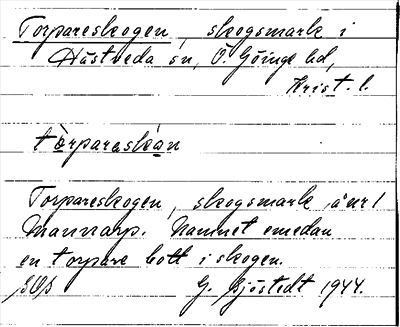 Torpareskogen, skogsmark i
Hästveda sn, Ö. Göinge hd,
Krist. l.
tòrparaskàn
Torpareskogen, skogsmark å nr 1
Mannarp. Namnet emedan
en torpare bott i skogen.
G. Sjöstedt 1944.